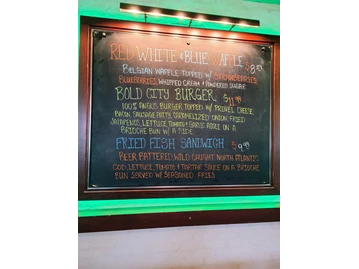 RED WHITE & BLUE WAFFLE $8.95
BELGIAN WAFFLE TOPPED W/ STRAWBERRIES
BLUEBERRIES WHIPPED CREAM & POWDERED SUGAR
BOLD CITY BURGER $11.95
100% ANGUS BURGER TOPPED W/ PRIMEL CHEESE
BACON, SAUSAGE PATTY, CARAMELIZED ONION, FRIED
JALAPENOS, LETTUCE, TOMATO & GARLIC AIOLI ON A
BRIOCHE BUN W/ A SIDE
FRIED FISH SANDWICH $9.95
BEER BATTERED, WILD CAUGHT NORTH ATLANTIC
COD, LETTUCE, TOMATO & TARTAR SAUCE ON A BRIOCHE
BUN SERVED W/ SEASONED FRIES